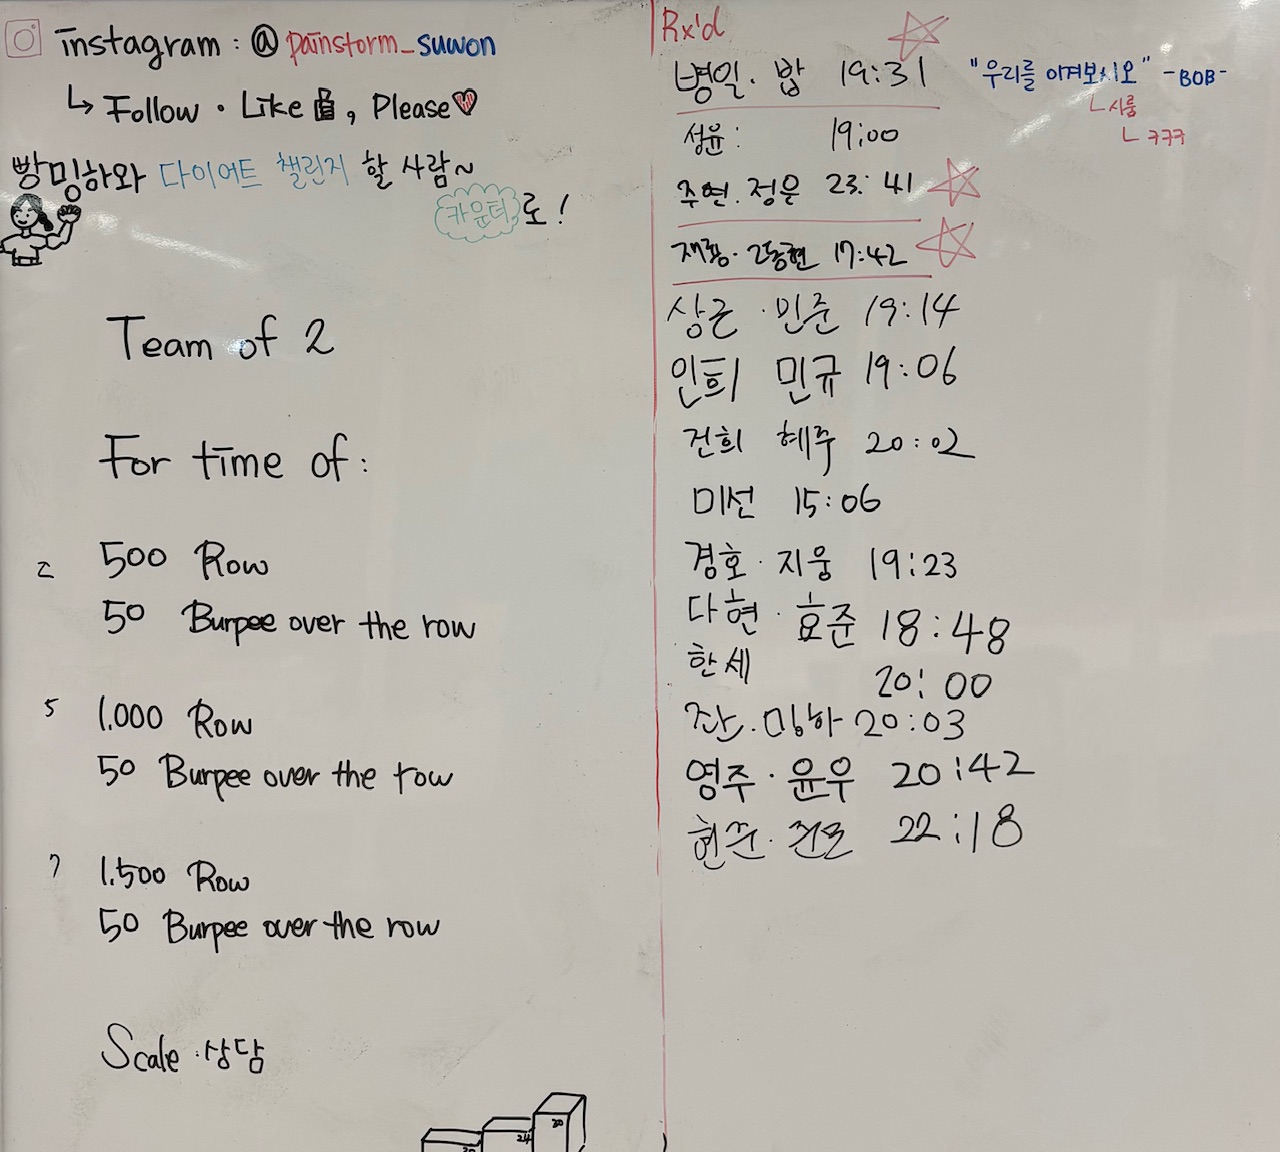 instagram : @ painstorm_suwon
↳ Follow · Like, Please
빵밍하와 다이어트 챌린지 할 사람~
카운터로!
Team of 2
For time of:
2 500 Row
50 Burpee over the row
5 1.000 Row
50 Burpee over the row
7 1.500 Row
50 Burpee over the row
Scale · 상담
20 24 30
Rx'd
병일 · 밥 19:31 "우리를 이겨보시오" -BOB-
ㄴ 시룸
ㄴ ㅋㅋㅋ
성윤: 19:00
주연 . 정은 23:41
재룡 · 2동현 17:42
상근 · 민준 19:14
인희 민규 19:06
건희 혜주 20:02
미선 15:06
경호 · 지웅 19:23
다현 · 효준 18:48
한세 20:00
쟌 . 밍하 20:03
영주 · 윤우 20:42
현준 · 22:18